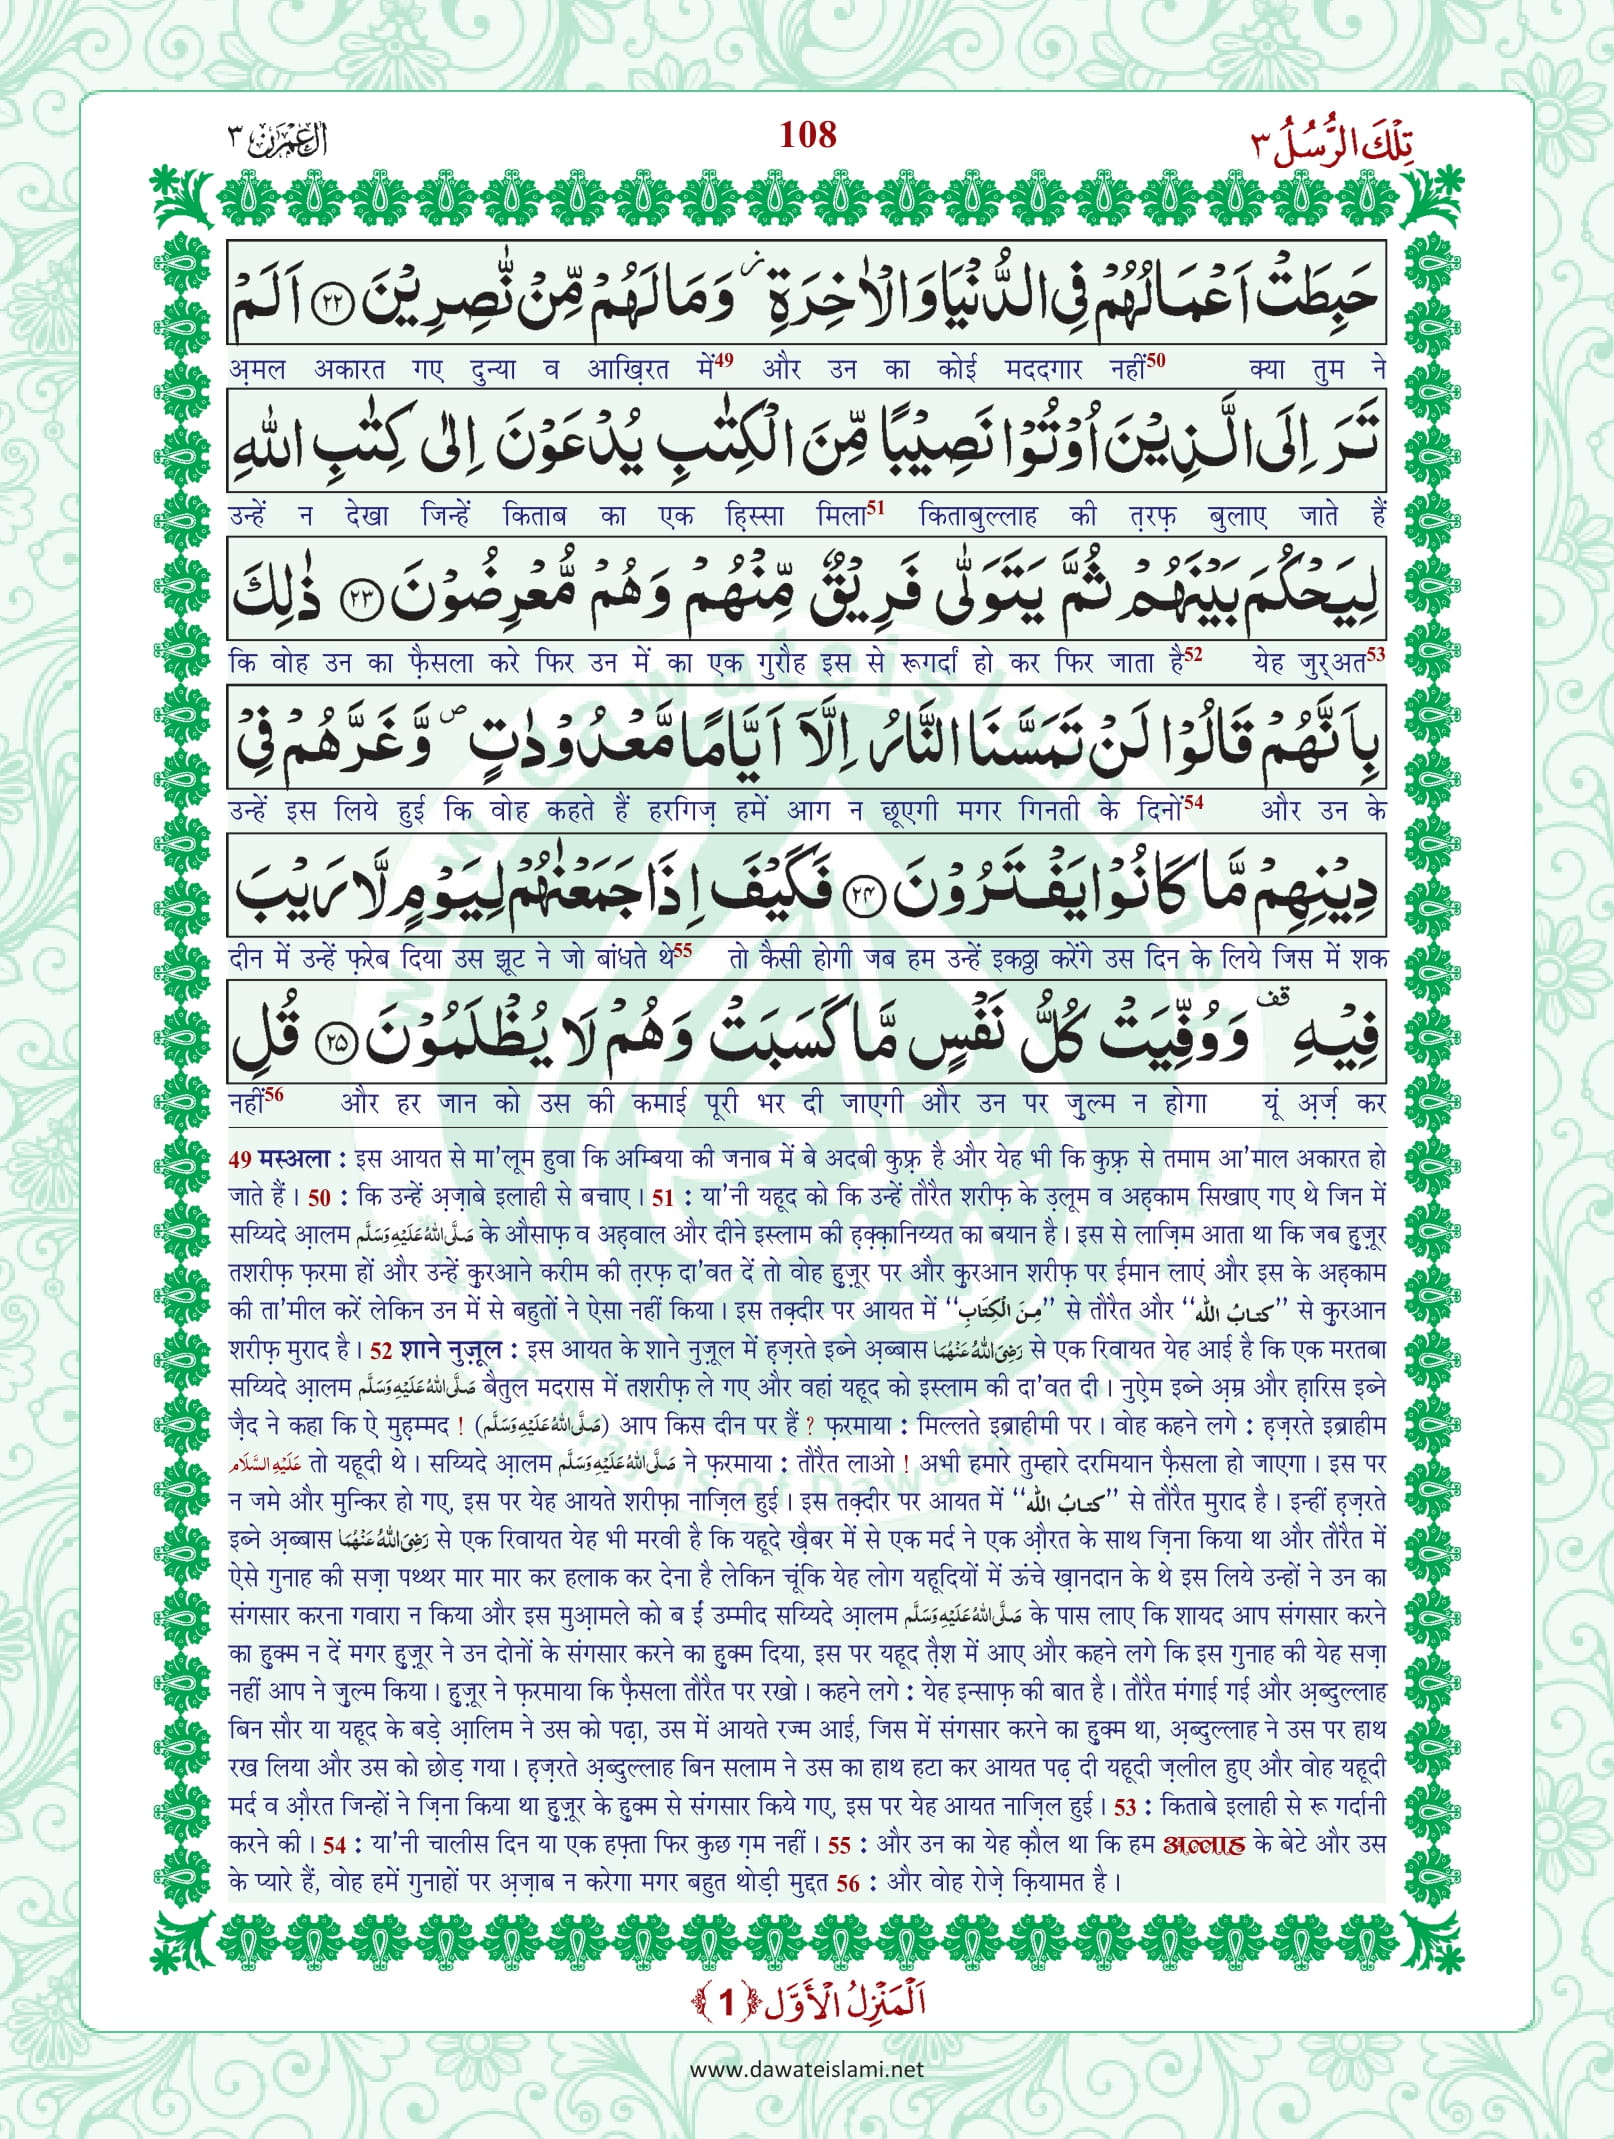 اٰل عِمْرٰن ٣
108
تِلْكَ الرُّسُلُ ٣
حَبِطَتْ اَعْمَالُهُمْ فِی الدُّنْیَا وَالْاٰخِرَةِ ؗ وَمَا لَهُمْ مِّنْ نّٰصِرِیْنَ ﴿۲۲﴾ اَلَمْ
अ़मल अकारत गए दुन्या व आख़िरत में49 और उन का कोई मददगार नहीं50 क्या तुम ने
تَرَ اِلَی الَّذِیْنَ اُوْتُوْا نَصِیْبًا مِّنَ الْكِتٰبِ یُدْعَوْنَ اِلٰی كِتٰبِ اللّٰهِ
उन्हें न देखा जिन्हें किताब का एक हि़स्सा मिला51 किताबुल्लाह की त़रफ़ बुलाए जाते हैं
لِیَحْكُمَ بَیْنَهُمْ ثُمَّ یَتَوَلّٰی فَرِیْقٌ مِّنْهُمْ وَهُمْ مُّعْرِضُوْنَ ﴿۲۳﴾ ذٰلِكَ
कि वोह उन का फ़ैसला करे फिर उन में का एक गुरौह इस से रूगर्दां हो कर फिर जाता है52 येह जुरअत53
بِاَنَّهُمْ قَالُوْا لَنْ تَمَسَّنَا النَّارُ اِلَّاۤ اَیَّامًا مَّعْدُوْدٰتٍ ۪ وَّغَرَّهُمْ فِیْ
उन्हें इस लिये हुई कि वोह कहते हैं हरगिज़ हमें आग न छूएगी मगर गिनती के दिनों54 और उन के
دِیْنِهِمْ مَّا كَانُوْا یَفْتَرُوْنَ ﴿۲۴﴾ فَكَیْفَ اِذَا جَمَعْنٰهُمْ لِیَوْمٍ لَّا رَیْبَ
दीन में उन्हें फ़रेब दिया उस झूट ने जो बांधते थे55 तो कैसी होगी जब हम उन्हें इकठ्ठा करेंगे उस दिन के लिये जिस में शक
فِیْهِ ۫ وَوُفِّیَتْ كُلُّ نَفْسٍ مَّا كَسَبَتْ وَهُمْ لَا یُظْلَمُوْنَ ﴿۲۵﴾ قُلِ
नहीं56 और हर जान को उस की कमाई पूरी भर दी जाएगी और उन पर ज़ुल्म न होगा यूं अ़र्ज़ कर
49 मस्अला : इस आयत से मा'लूम हुवा कि अम्बिया की जनाब में बे अदबी कुफ़्र है और येह भी कि कुफ़्र से तमाम आ'माल अकारत हो
जाते हैं। 50 : कि उन्हें अ़ज़ाबे इलाही से बचाए। 51 : या'नी यहूद को कि उन्हें तौरैत शरीफ़ के उ़लूम व अह़काम सिखाए गए थे जिन में
सय्यिदे आ़लम صَلَّى اللهُ عَلَيْهِ وَسَلَّم के औसाफ़ व अह़वाल और दीने इस्लाम की ह़क़्क़ानिय्यत का बयान है। इस से लाज़िम आता था कि जब हुज़ूर
तशरीफ़ फ़रमा हों और उन्हें क़ुरआने करीम की त़रफ़ दा'वत दें तो वोह हुज़ूर पर और क़ुरआन शरीफ़ पर ईमान लाएं और इस के अह़काम
की ता'मील करें लेकिन उन में से बहुतों ने ऐसा नहीं किया। इस तक़्दीर पर आयत में ‘‘مِنَ الْكِتَابِ’’ से तौरैत और ‘‘كتابُ الله’’ से क़ुरआन
शरीफ़ मुराद है। 52 शाने नुज़ूल : इस आयत के शाने नुज़ूल में ह़ज़रते इब्ने अ़ब्बास رَضِيَ اللهُ عَنْهُمَا से एक रिवायत येह आई है कि एक मरतबा
सय्यिदे आ़लम صَلَّى اللهُ عَلَيْهِ وَسَلَّم बैतुल मदरास में तशरीफ़ ले गए और वहां यहूद को इस्लाम की दा'वत दी। नुऐ़म इब्ने अ़म्र और ह़ारिस इब्ने
ज़ैद ने कहा कि ऐ मुह़म्मद ! (صَلَّى اللهُ عَلَيْهِ وَسَلَّم) आप किस दीन पर हैं ? फ़रमाया : मिल्लते इब्राहीमी पर। वोह कहने लगे : ह़ज़रते इब्राहीम
عَلَيْهِ السَّلَام तो यहूदी थे। सय्यिदे आ़लम صَلَّى اللهُ عَلَيْهِ وَسَلَّم ने फ़रमाया : तौरैत लाओ ! अभी हमारे तुम्हारे दरमियान फ़ैसला हो जाएगा। इस पर
न जमे और मुन्किर हो गए, इस पर येह आयते शरीफ़ा नाज़िल हुई। इस तक़्दीर पर आयत में ‘‘كتابُ الله’’ से तौरैत मुराद है। इन्हीं ह़ज़रते
इब्ने अ़ब्बास رَضِيَ اللهُ عَنْهُمَا से एक रिवायत येह भी मरवी है कि यहूदे ख़ैबर में से एक मर्द ने एक औ़रत के साथ ज़िना किया था और तौरैत में
ऐसे गुनाह की सज़ा पथ्थर मार मार कर हलाक कर देना है लेकिन चूंकि येह लोग यहूदियों में ऊंचे ख़ानदान के थे इस लिये उन्हों ने उन का
संगसार करना गवारा न किया और इस मुआ़मले को ब ईं उम्मीद सय्यिदे आ़लम صَلَّى اللهُ عَلَيْهِ وَسَلَّم के पास लाए कि शायद आप संगसार करने
का हुक्म न दें मगर हुज़ूर ने उन दोनों के संगसार करने का हुक्म दिया, इस पर यहूद त़ैश में आए और कहने लगे कि इस गुनाह की येह सज़ा
नहीं आप ने ज़ुल्म किया। हुज़ूर ने फ़रमाया कि फ़ैसला तौरैत पर रखो। कहने लगे : येह इन्साफ़ की बात है। तौरैत मंगाई गई और अ़ब्दुल्लाह
बिन सौर या यहूद के बड़े आ़लिम ने उस को पढ़ा, उस में आयते रज्म आई, जिस में संगसार करने का हुक्म था, अ़ब्दुल्लाह ने उस पर हाथ
रख लिया और उस को छोड़ गया। ह़ज़रते अ़ब्दुल्लाह बिन सलाम ने उस का हाथ हटा कर आयत पढ़ दी यहूदी ज़लील हुए और वोह यहूदी
मर्द व औ़रत जिन्हों ने ज़िना किया था हुज़ूर के हुक्म से संगसार किये गए, इस पर येह आयत नाज़िल हुई। 53 : किताबे इलाही से रू गर्दानी
करने की। 54 : या'नी चालीस दिन या एक हफ़्ता फिर कुछ ग़म नहीं। 55 : और उन का येह क़ौल था कि हम अल्लाह के बेटे और उस
के प्यारे हैं, वोह हमें गुनाहों पर अ़ज़ाब न करेगा मगर बहुत थोड़ी मुद्दत 56 : और वोह रोज़े क़ियामत है।
اَلْمَنْزِلُ الْاَوَّل ﴿1﴾
www.dawateislami.net